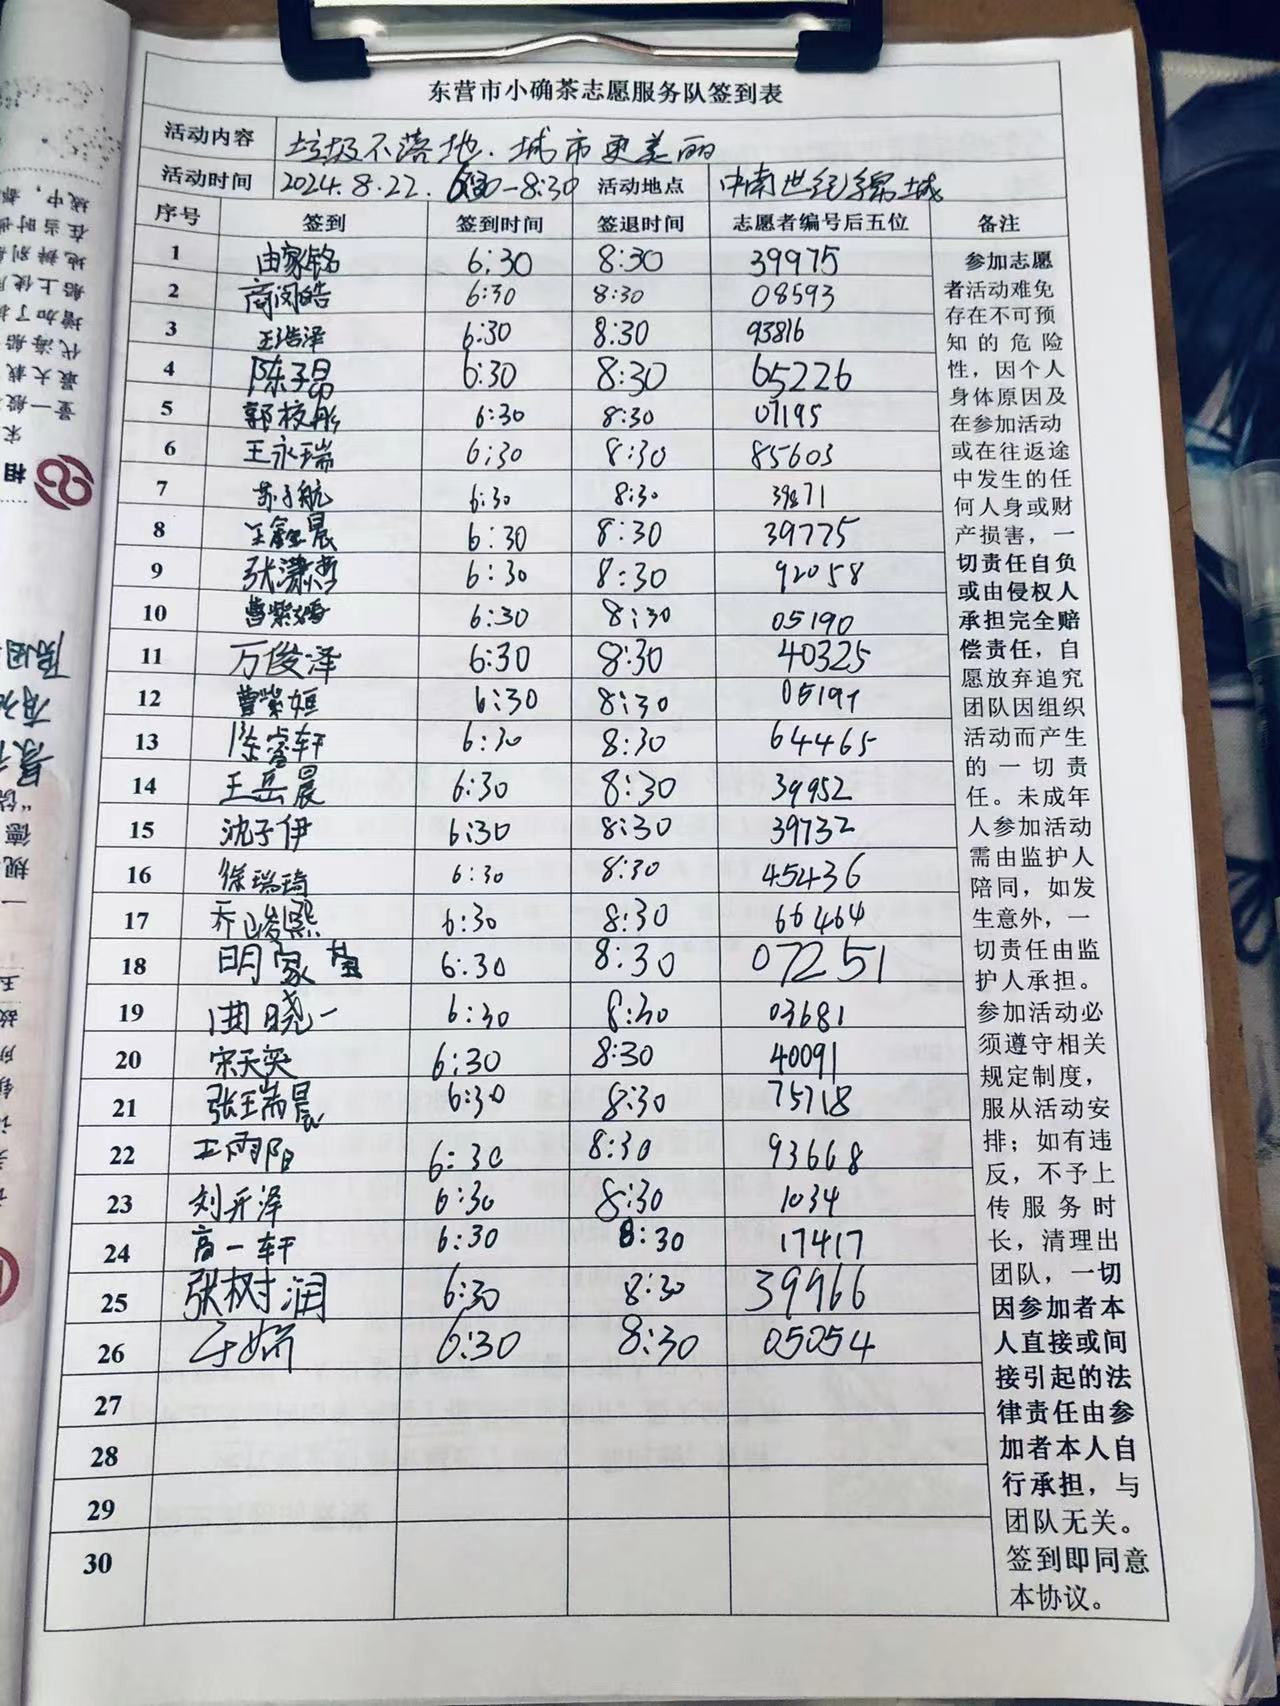 东营市小确茶志愿服务队签到表
活动内容 垃圾不落地.城市更美丽
活动时间 2024.8.22. 6:30-8:30 活动地点 中南世纪锦城
序号 签到 签到时间 签退时间 志愿者编号后五位 备注
1 由家铭 6:30 8:30 39975
2 商闵皓 6:30 8:30 08593
3 王浩泽 6:30 8:30 93816
4 陈子昂 6:30 8:30 65226
5 郭校彤 6:30 8:30 07195
6 王永瑞 6:30 8:30 85603
7 苏子航 6:30 8:30
8 王鑫晨 6:30 8:30 39775
9 张潇 6:30 8:30 92058
10 曹紫 6:30 8:30 05190
11 万俊泽 6:30 8:30 40325
12 曹紫姮 6:30 8:30 05191
13 陈睿轩 6:30 8:30 64465
14 王岳晨 6:30 8:30 39952
15 沈子伊 6:30 8:30 39732
16 徐瑞琦 6:30 8:30 45436
17 乔峻熙 6:30 8:30 66464
18 明家 6:30 8:30 07251
19 曲晓一 6:30 8:30 03681
20 宋天奕 6:30 8:30 40091
21 张瑞晨 6:30 8:30 75718
22 王雨阳 6:30 8:30 93668
23 刘开泽 6:30 8:30 1034
24 高一轩 6:30 8:30 17417
25 张树润 6:30 8:30 39966
26 于娇 6:30 8:30 05054
27
28
29
30
参加志愿
者活动难免
存在不可预
知的危险
性，因个人
身体原因及
在参加活动
或在往返途
中发生的任
何人身或财
产损害，一
切责任自负
或由侵权人
承担完全赔
偿责任，自
愿放弃追究
团队因组织
活动而产生
的一切责
任。未成年
人参加活动
需由监护人
陪同，如发
生意外，一
切责任由监
护人承担。
参加活动必
须遵守相关
规定制度，
服从活动安
排；如有违
反，不予上
传服务时
长，清理出
团队，一切
因参加者本
人直接或间
接引起的法
律责任由参
加者本人自
行承担，与
团队无关。
签到即同意
本协议。